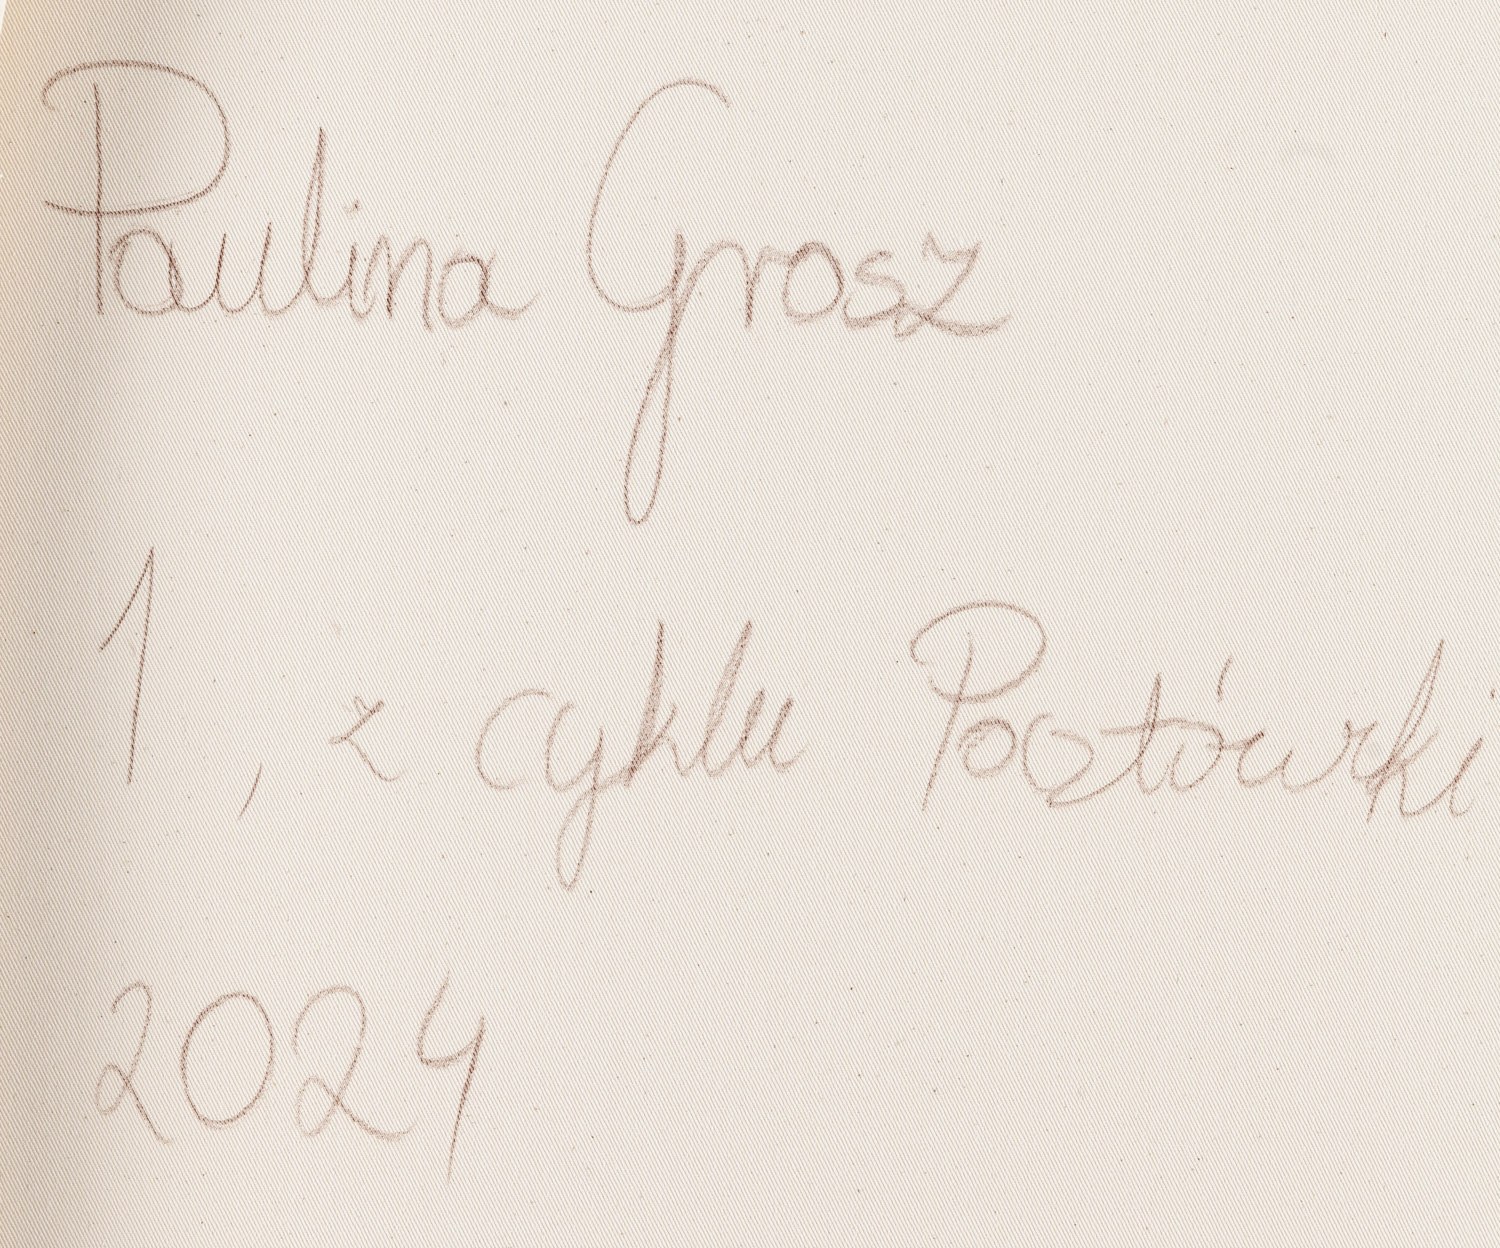 Paulina Grosz
1, z cyklu Pocztówki
2024